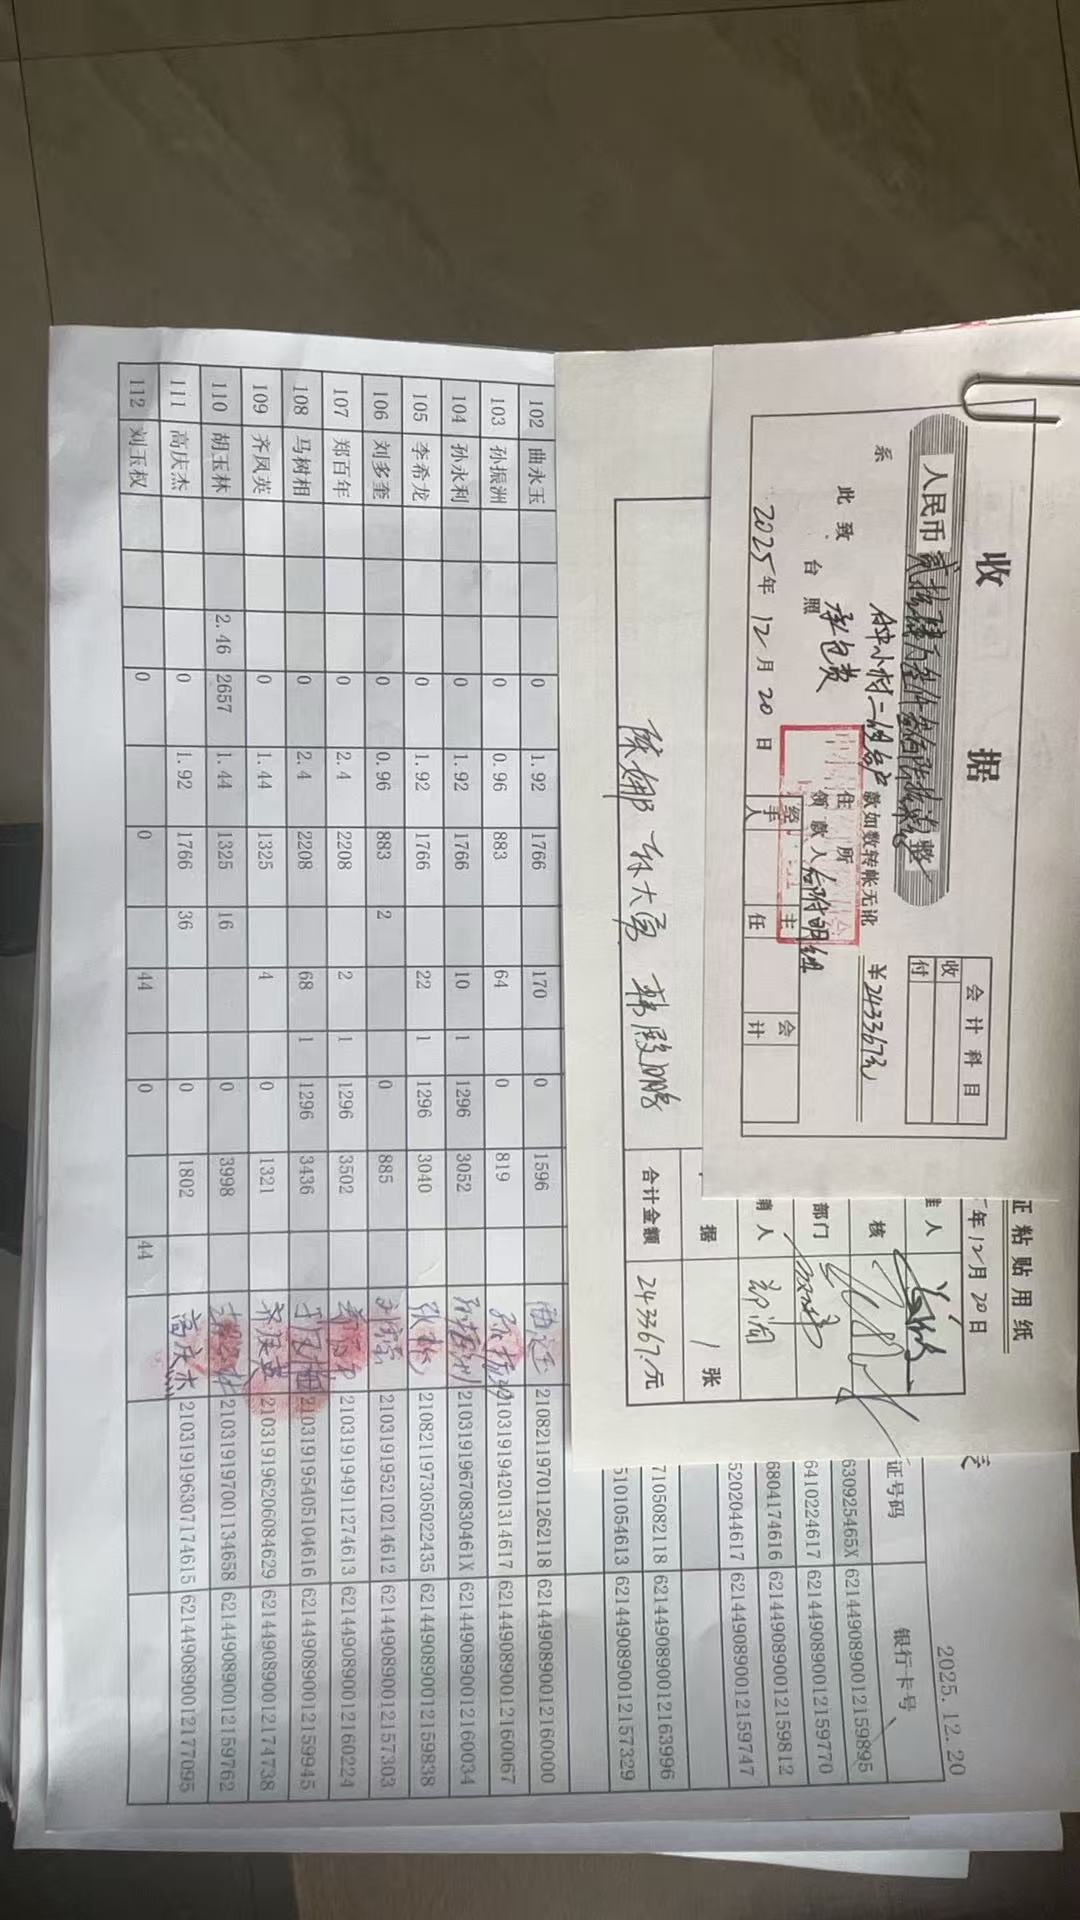 收 据
会 计 科 目
收
付
人民币
整
￥243367元
系
款如数转帐无讹
此 致
台 照
承包费
住 所
领 款 人 后附明细
2025年 12月 20日
经手人
主任
会计
证 粘 贴 用 纸
年12月20日
准 人
核
部门
销 人
据 / 张
合计金额 243367.元
2025.12.20
证号码 银行卡号
630925465X 6214490890012159895
6410224617 6214490890012159770
6804174616 6214490890012159812
5202044617 6214490890012159747
7105082118 6214490890012163996
5101054613 6214490890012157329
102 曲永玉 0 1.92 1766 170 0 1596 210821197011262118 6214490890012160000
103 孙振洲 0 0.96 883 64 0 819 210319194201314617 6214490890012160067
104 孙永利 0 1.92 1766 10 1 1296 3052 21031919670830461X 6214490890012160034
105 李希龙 0 1.92 1766 22 1 1296 3040 210821197305022435 6214490890012159838
106 刘多奎 0 0.96 883 2 0 885 210319195210214612 6214490890012157303
107 郑百年 0 2.4 2208 2 1 1296 3502 210319194911274613 6214490890012160224
108 马树相 0 2.4 2208 68 1 1296 3436 210319195405104616 6214490890012159945
109 齐凤英 0 1.44 1325 4 0 1321 齐凤英 210319196206084629 6214490890012174738
110 胡玉林 2.46 2657 1.44 1325 16 0 3998 210319197001134658 6214490890012159762
111 高庆杰 0 1.92 1766 36 0 1802 高庆杰 210319196307174615 6214490890012177095
112 刘玉权 0 0 44 0 44